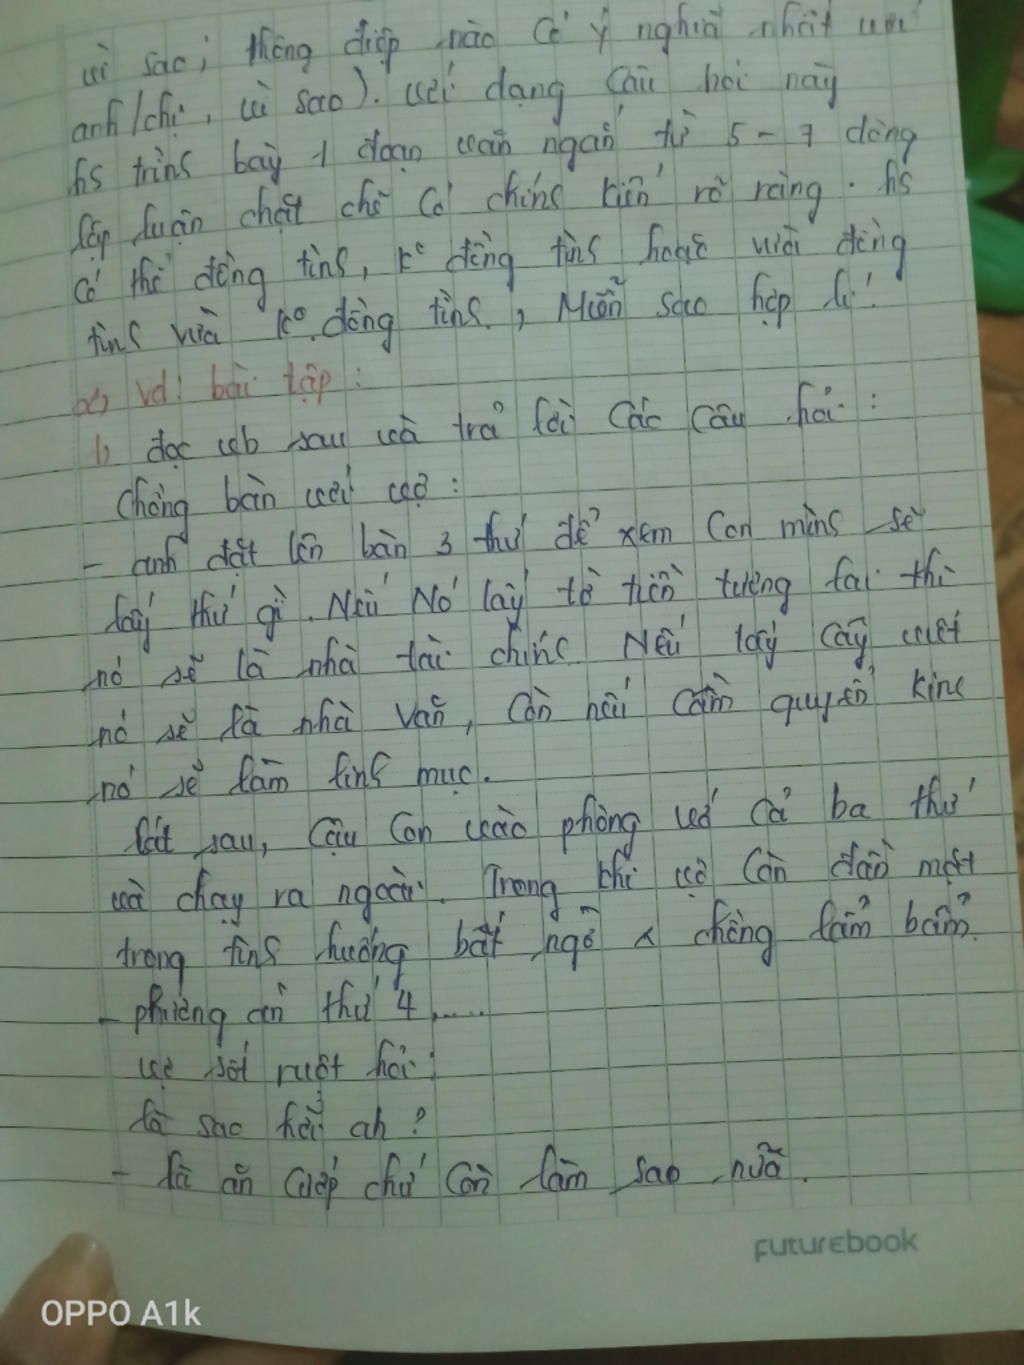 vì sao; thông điệp nào có ý nghĩa nhất với
anh/chị, vì sao). với dạng câu hỏi này
hs trình bày 1 đoạn văn ngắn từ 5-7 dòng
lập luận chặt chẽ có chính kiến rõ ràng. hs
có thể đồng tình, ko đồng tình hoặc vừa đồng
tình vừa ko đồng tình, Miễn sao hợp lí.
Vd: bài tập:
1) đọc vb sau và trả lời các câu hỏi:
Chồng bàn với vợ:
- anh đặt lên bàn 3 thứ để xem con mình sẽ
lấy thứ gì. Nếu Nó lấy tờ tiền tương lai thì
nó sẽ là nhà tài chính Nếu lấy cây viết
nó sẽ là nhà văn, còn nếu cầm quyển kinh
nó sẽ làm linh mục.
lát sau, cậu con vào phòng vớ cả ba thứ
và chạy ra ngoài. Trong khi vợ còn đần mặt
trong tình huống bất ngờ chồng lẩm bẩm.
- phương án thứ 4.....
vợ sốt ruột hỏi:
là sao hả anh?
- là ăn cướp chứ còn làm sao nữa.
FUTUREBOOK
OPPO A1k